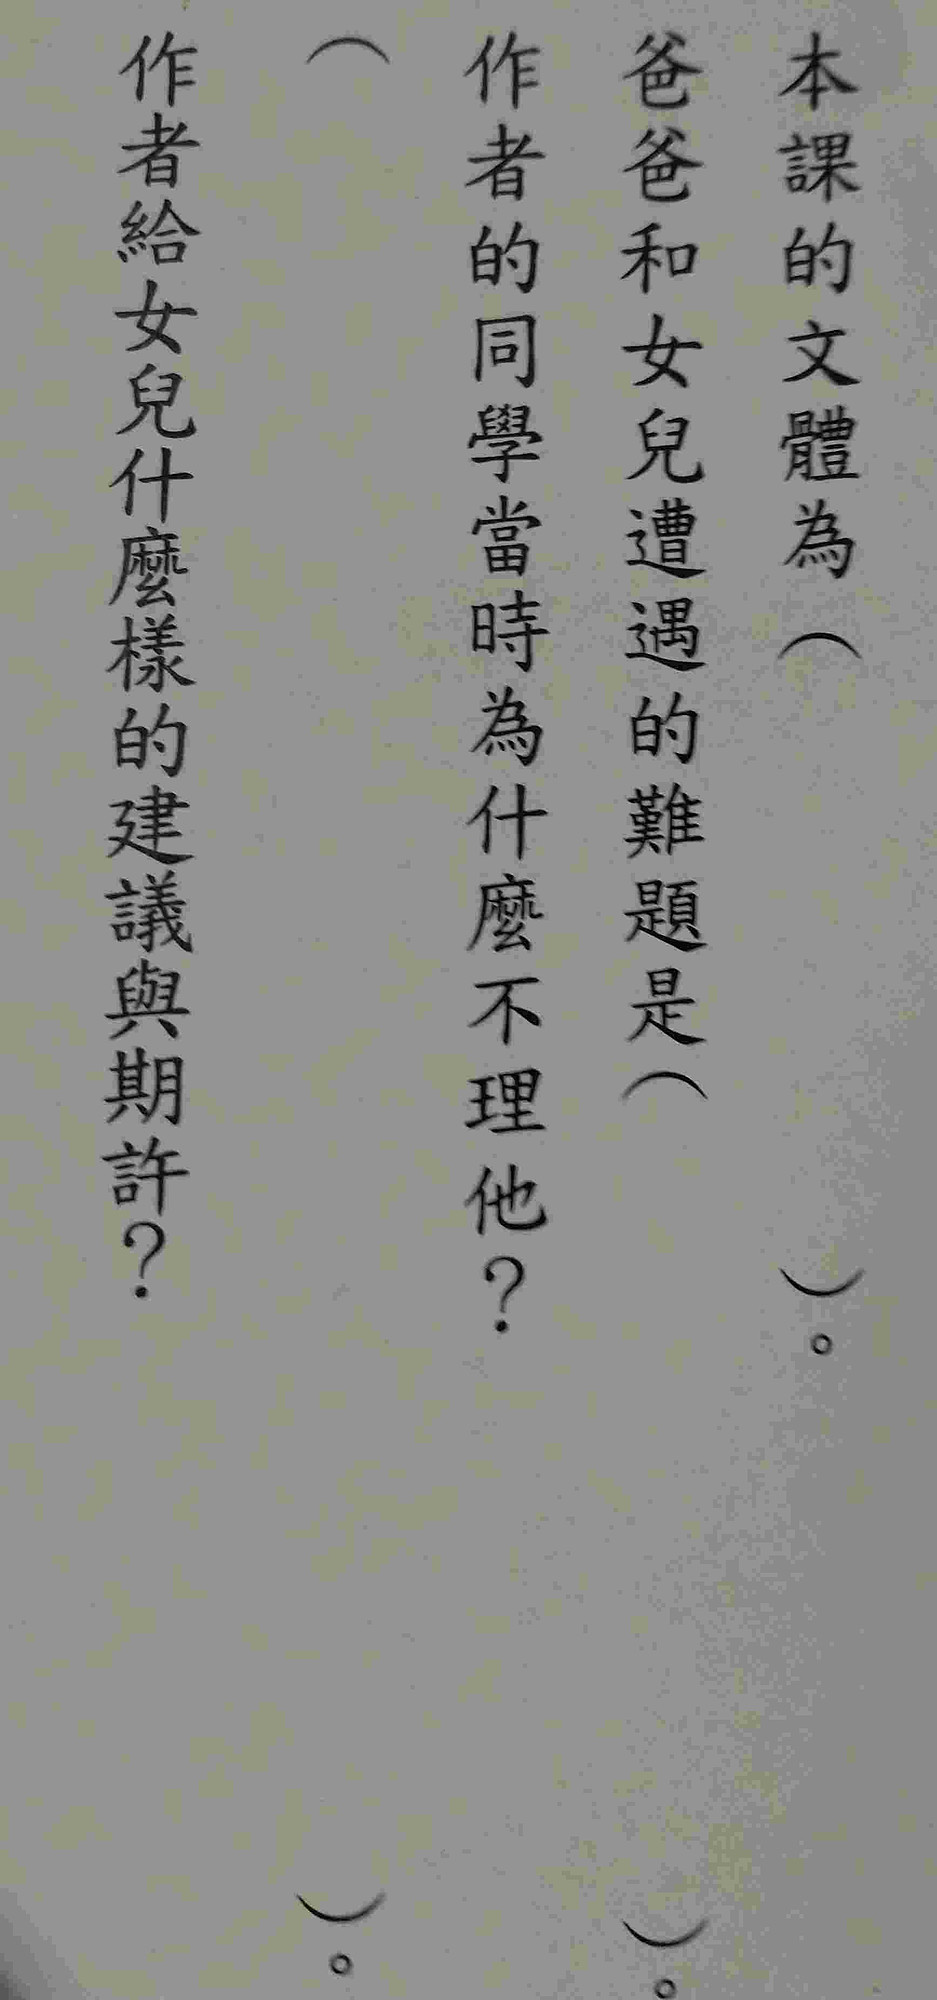 本課的文體為（　　　）。
爸爸和女兒遭遇的難題是（　　　）。
作者的同學當時為什麼不理他？
（　　　）。
作者給女兒什麼樣的建議與期許？